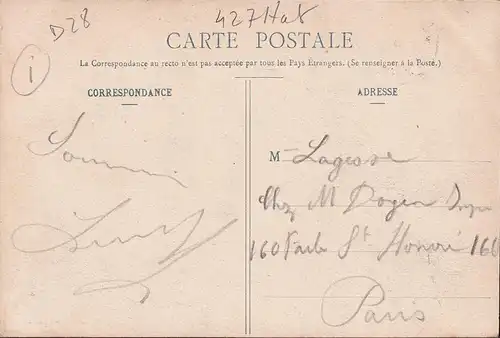 D28
427 Hab
CARTE POSTALE
1
La Correspondance au recto n'est pas acceptée par tous les Pays Etrangers. (Se renseigner à la Poste.)
CORRESPONDANCE
ADRESSE
M Lagesse
Chez M Doyen
160 Faub St Honoré 160
Paris